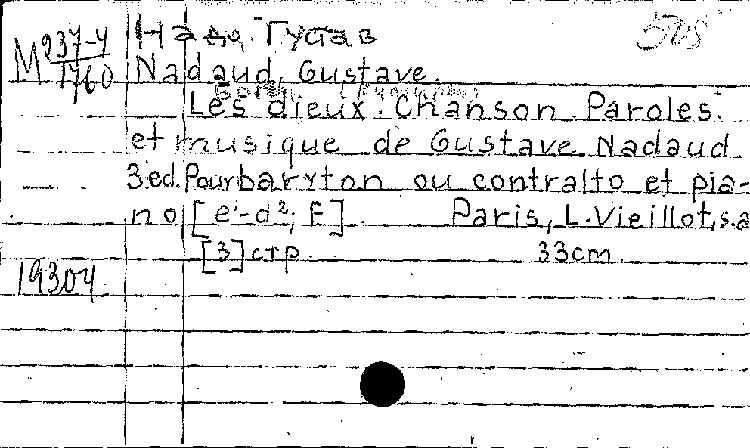 М 237-4/1760
Надо, Густав
Nadaud, Gustave.
Les dieux. Chanson. Paroles
et musique de Gustave Nadaud
3 ed. Pour baryton ou contralto et pia-
no [e¹-d²; F] Paris, L. Vieillot, s.a
[3] стр. 33cm
19304